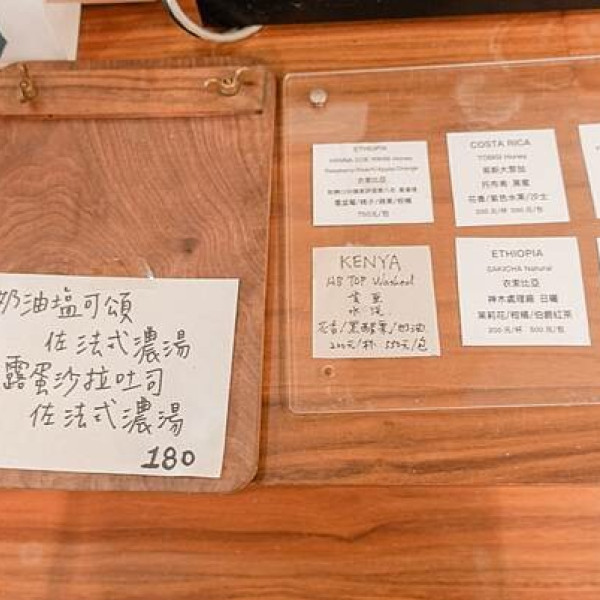 奶油塩可頌
佐法式濃湯
露蛋沙拉吐司
佐法式濃湯
180
ETHIOPIA
衣索比亞
750元/包
COSTA RICA
哥斯大黎加
托布希 黑蜜
花香/紫色水果/沙士
KENYA
AB TOP Washed
肯亞
水洗
花香/黑醋栗/奶油
200元/杯 550元/包
ETHIOPIA
SAKICHA Natural
衣索比亞
神木處理廠 日曬
茉莉花/柑橘/伯爵紅茶
200元/杯 500元/包